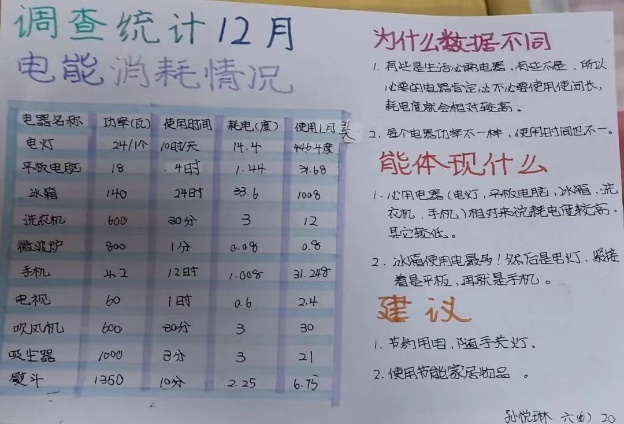 调查统计12月
电能消耗情况
电器名称 功率(瓦) 使用时间 耗电(度) 使用1月
电灯 24/1个 10时/天 14.4 446.4度
平板电脑 18 4时 1.44 31.68
冰箱 140 24时 33.6 1008
洗衣机 600 30分 3 12
微波炉 800 1分 0.08 0.8
手机 42 12时 1.008 31.248
电视 60 1时 0.6 2.4
吹风机 600 30分 3 30
吸尘器 1000 3分 3 21
熨斗 1350 10分 2.25 6.75
为什么数据不同
1. 有些是生活必需电器，有些不是，所以
必要的电器肯定比不必要使用使间长，
耗电度就会相对较高。
2. 每个电器功率不一样，使用时间也不一。
能体现什么
1. 必用电器(电灯，平板电脑，冰箱，洗
衣机，手机)相对来说耗电度较高，
其它较低。
2. 冰箱使用电器最！然后是电灯，紧接
着是平板，再就是手机。
建议
1. 节约用电，随手关灯。
2. 使用节能家居物品。
孙悦琳 六(6) 20